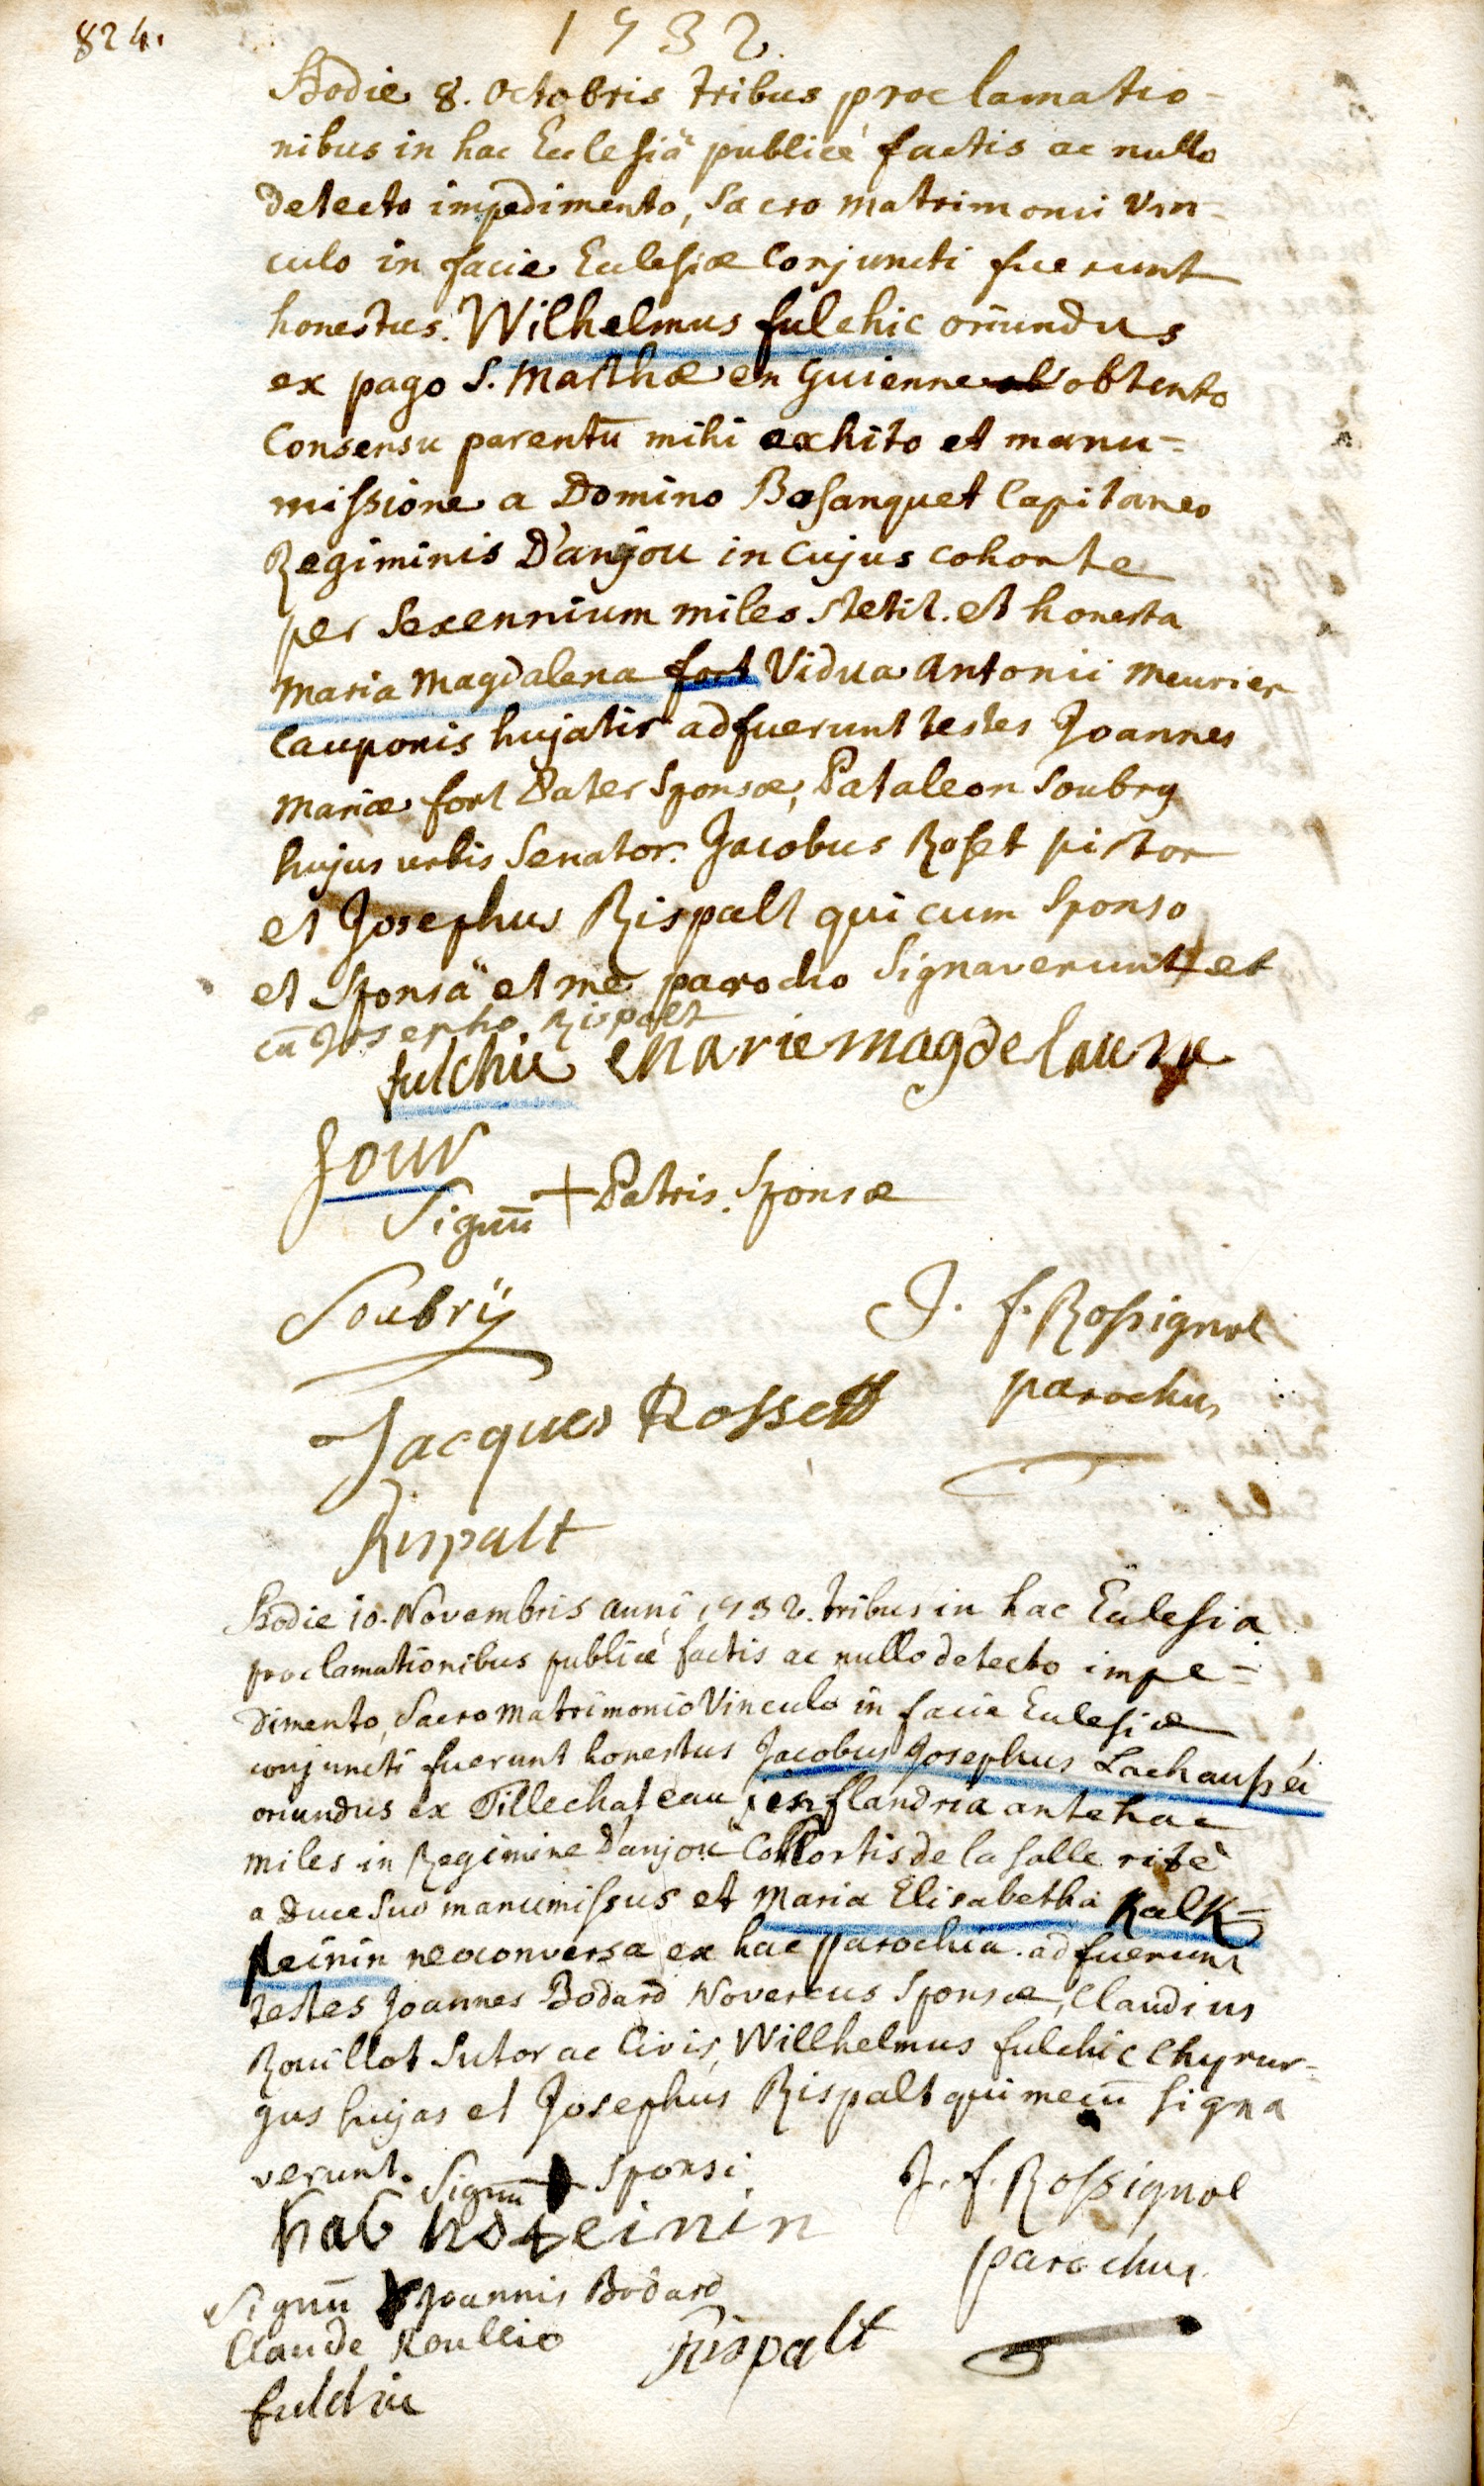 824.
1732.
Hodie 8. Octobris tribus proclamatio-
nibus in hac Ecclesiâ publicè factis ac nullo
detecto impedimento, Sacro matrimonii Vin-
culo in facie Ecclesiæ Conjuncti fuerunt
honestus. Wilhelmus fulchic oriundus
ex pago S. Marthæ en Guienne obtento
Consensu parentū mihi exhito et manu=
missione a Domino Bosanquet Capitaneo
Regiminis D'anjou in Cujus cohorte
per Sexennium miles stetit. et honesta
Maria Magdalena fort Vidua Antonii Meurier
Cauponis hujatis adfuerunt testes Joannes
Mariæ fort Pater Sponsæ, Pataleon Soubry
hujus urbis Senator. Jacobus Roset pictor
et Josephus Rispalt qui cum Sponso
et Sponsâ et me parocho Signaverunt et
cū Josepho Rispalt
fulchic Marie magdelaine
four
Signū + Patris Sponsæ
Soubrÿ
J. f. Rossignol
parochus
Jacques Rossett
Rispalt
Hodie 10. Novembris anni 1732. tribus in hac Ecclesia
proclamationibus publicè factis ac nullo detecto impe=
dimento, Sacro Matrimonio Vinculo in facie Ecclesiæ
conjuncti fuerunt honestus Jacobus Josephus Lachaussée
oriundus ex Tillechateau, en flandria antehac
miles in Regimine D'anjou Cohortis de la Salle ritè
a Duce Suo manumissus et Maria Elisabetha Kalk=
steinin neoconversa ex hac parochia. adfuerunt
testes Joannes Bodard Novercus Sponsæ, Claudius
Rouillot Sutor ac Civis, Willhelmus fulchic Chyrur-
gus hujas et Josephus Rispalt qui mecū Signa
verunt. Signū + Sponsi
J. f. Rossignol
parochus
Signū Joannis Bodard
Claude Roullio
Rispalt
fulchic